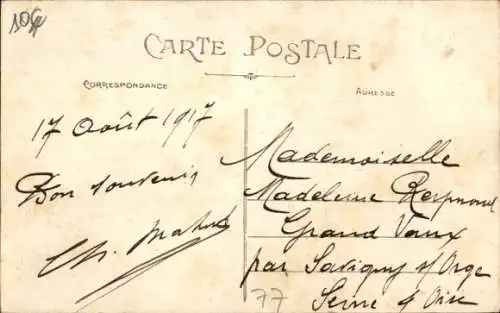 CARTE POSTALE
CORRESPONDANCE
ADRESSE
17 Août 1917
Bon souvenir
Ch.
Mademoiselle
Madeleine
Grand Vaux
par Savigny s/ Orge
Seine & Oise
77